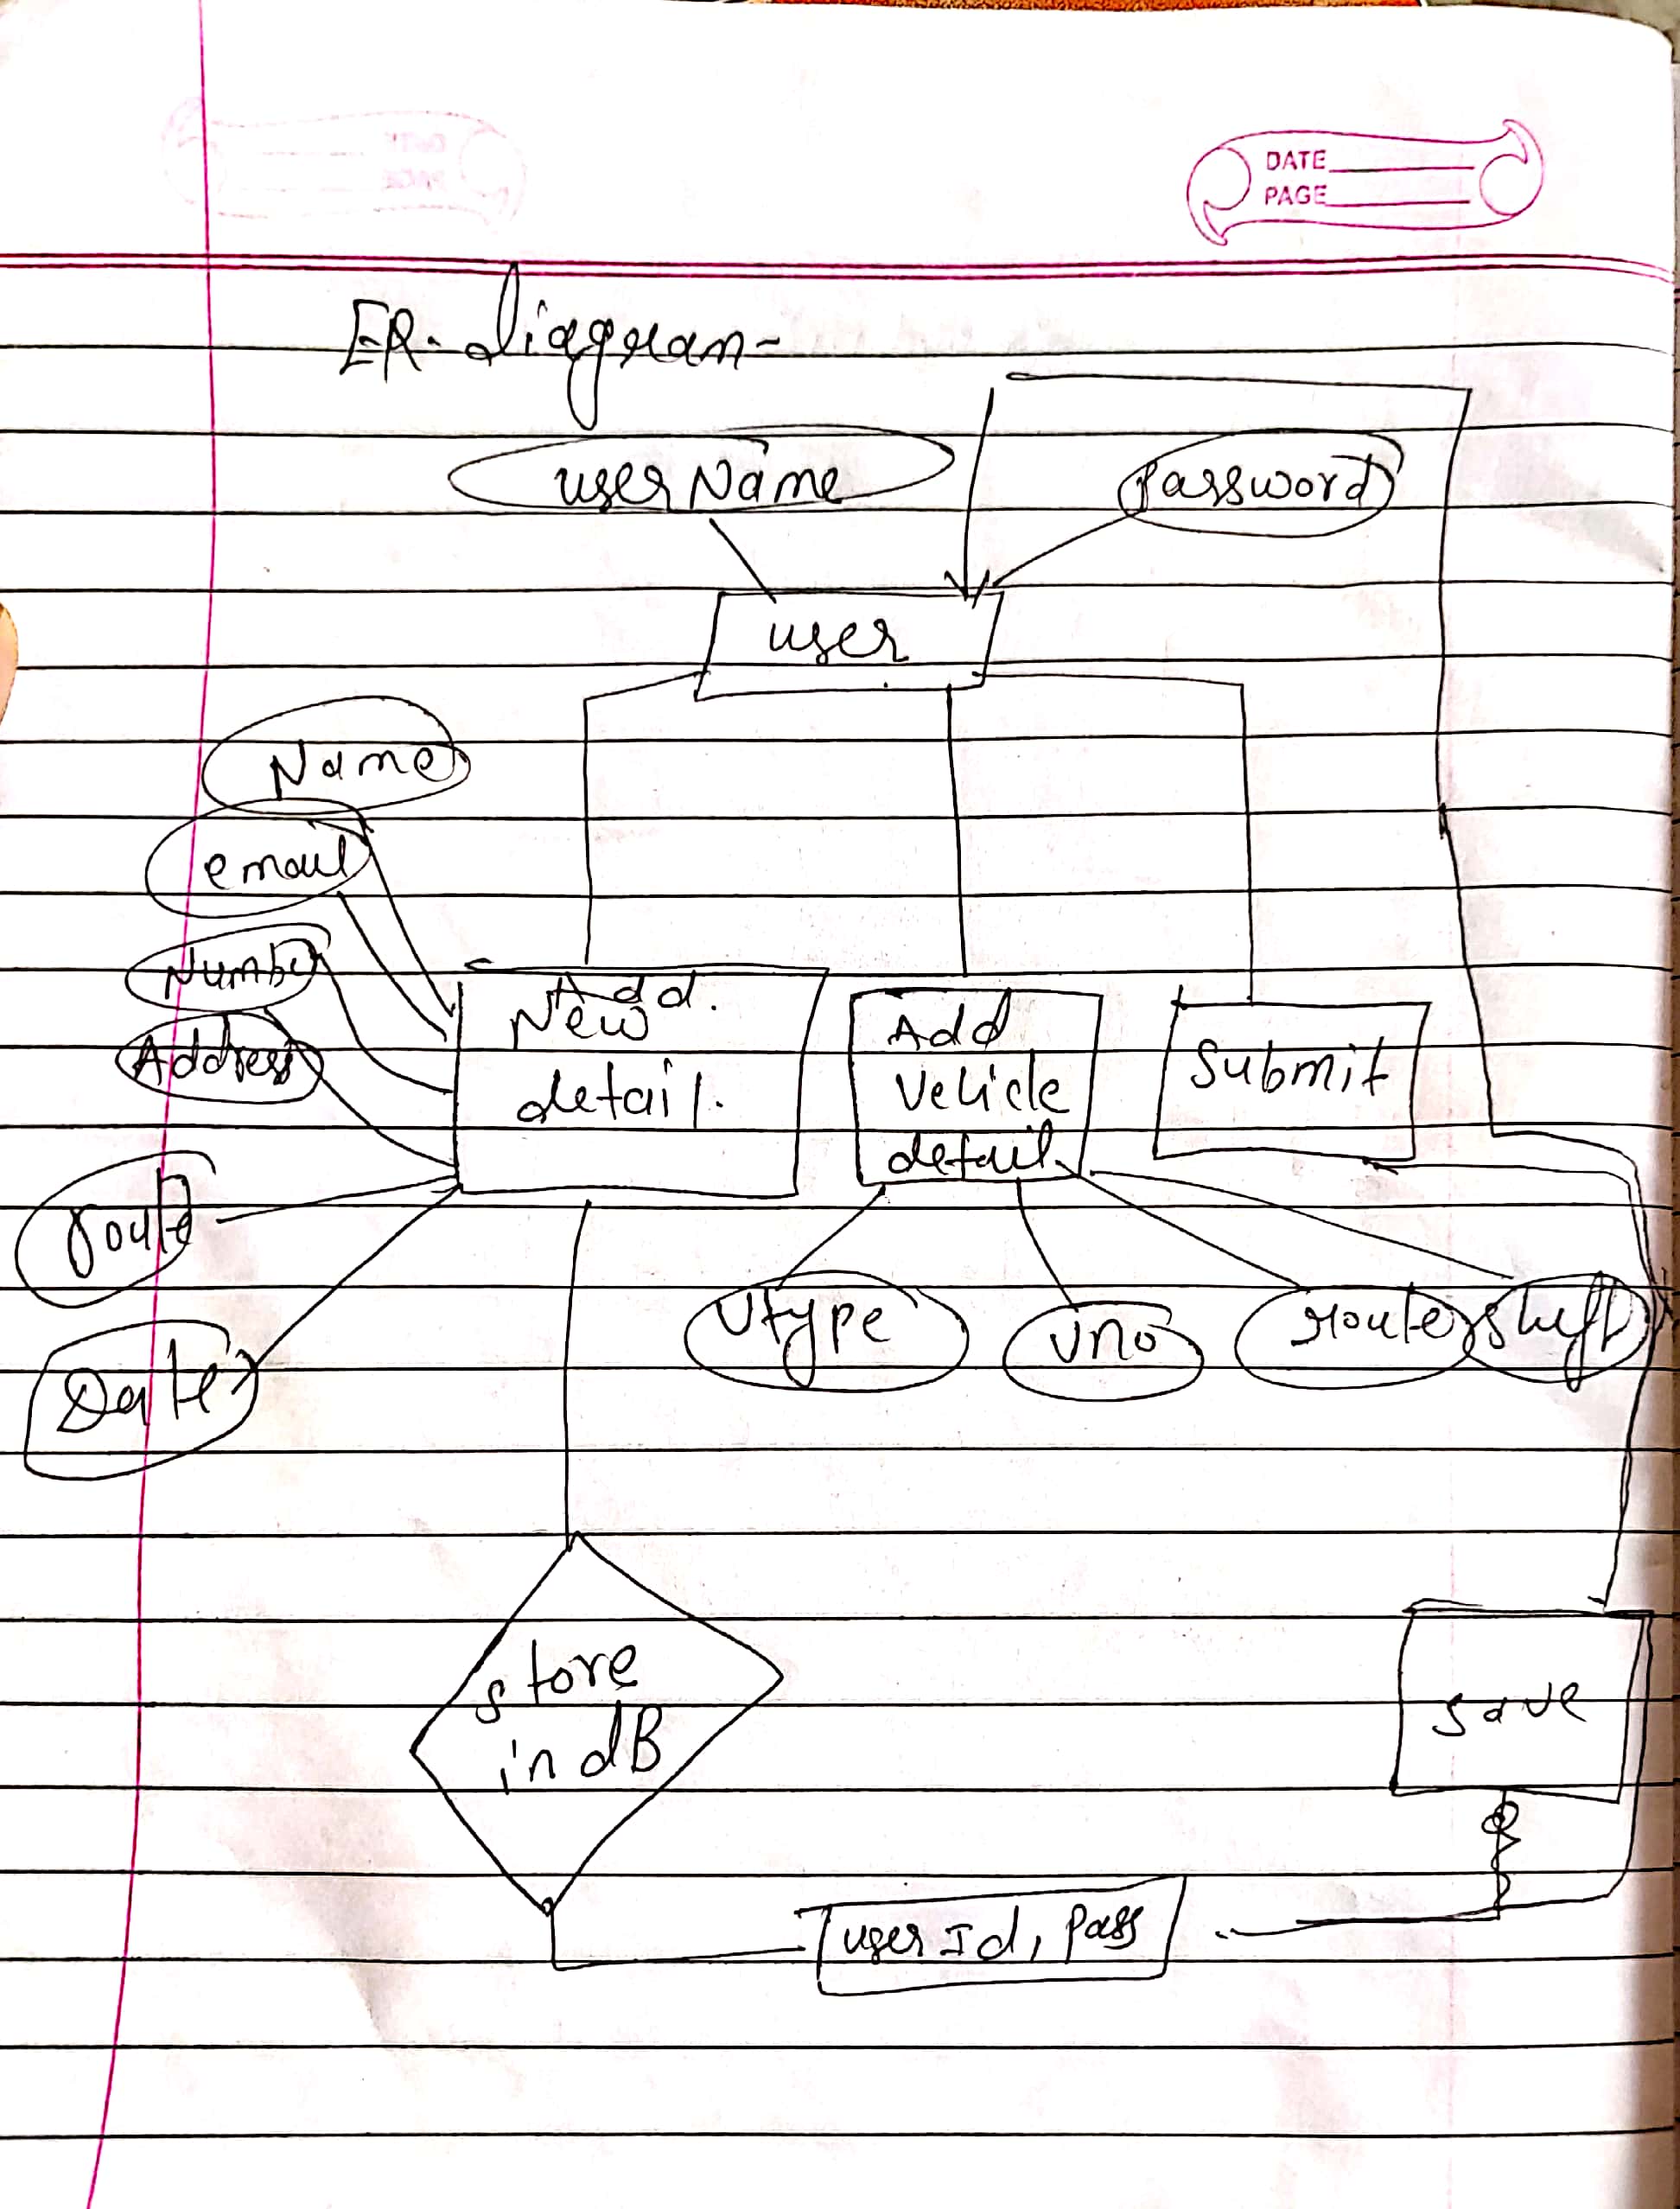 DATE
PAGE
ER. Diagram-
userName
Password
user
Name
email
Number
Address
Add.
New
detail.
Add
Vehicle
detail.
Submit
route
Date
Vtype
Vno
route
shift
store
in dB
save
user Id, Pass